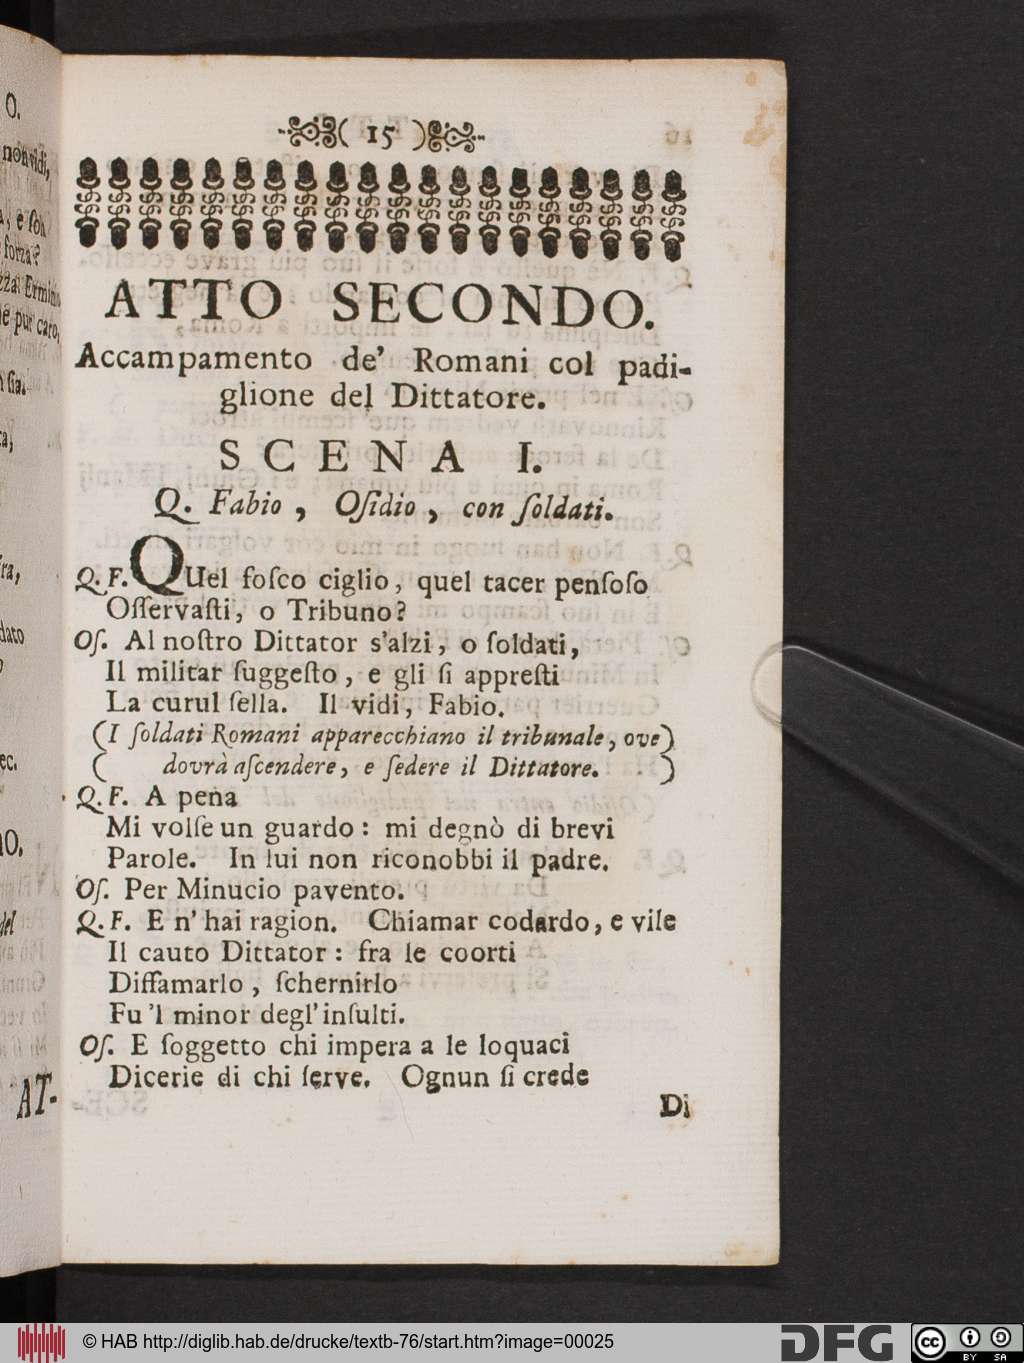 ( 15 )
ATTO SECONDO.
Accampamento de' Romani col padi-
glione del Dittatore.
SCENA I.
Q. Fabio, Oſidio, con ſoldati.
Q. F. QUel foſco ciglio, quel tacer penſoſo
Oſſervaſti, o Tribuno?
Oſ. Al noſtro Dittator s'alzi, o ſoldati,
Il militar ſuggeſto, e gli ſi appreſti
La curul ſella. Il vidi, Fabio.
(I ſoldati Romani apparecchiano il tribunale, ove)
( dovrà aſcendere, e ſedere il Dittatore. )
Q. F. A pena
Mi volſe un guardo: mi degnò di brevi
Parole. In lui non riconobbi il padre.
Oſ. Per Minucio pavento.
Q. F. E n' hai ragion. Chiamar codardo, e vile
Il cauto Dittator: fra le coorti
Diffamarlo, ſchernirlo
Fu 'l minor degl' inſulti.
Oſ. E ſoggetto chi impera a le loquaci
Dicerie di chi ſerve. Ognun ſi crede
Di
O.
non vidi,
e ſon
forza?
Ermini
pur caro,
ſia.
dato
ec.
del
AT-
© HAB http://diglib.hab.de/drucke/textb-76/start.htm?image=00025
DFG
cc BY SA